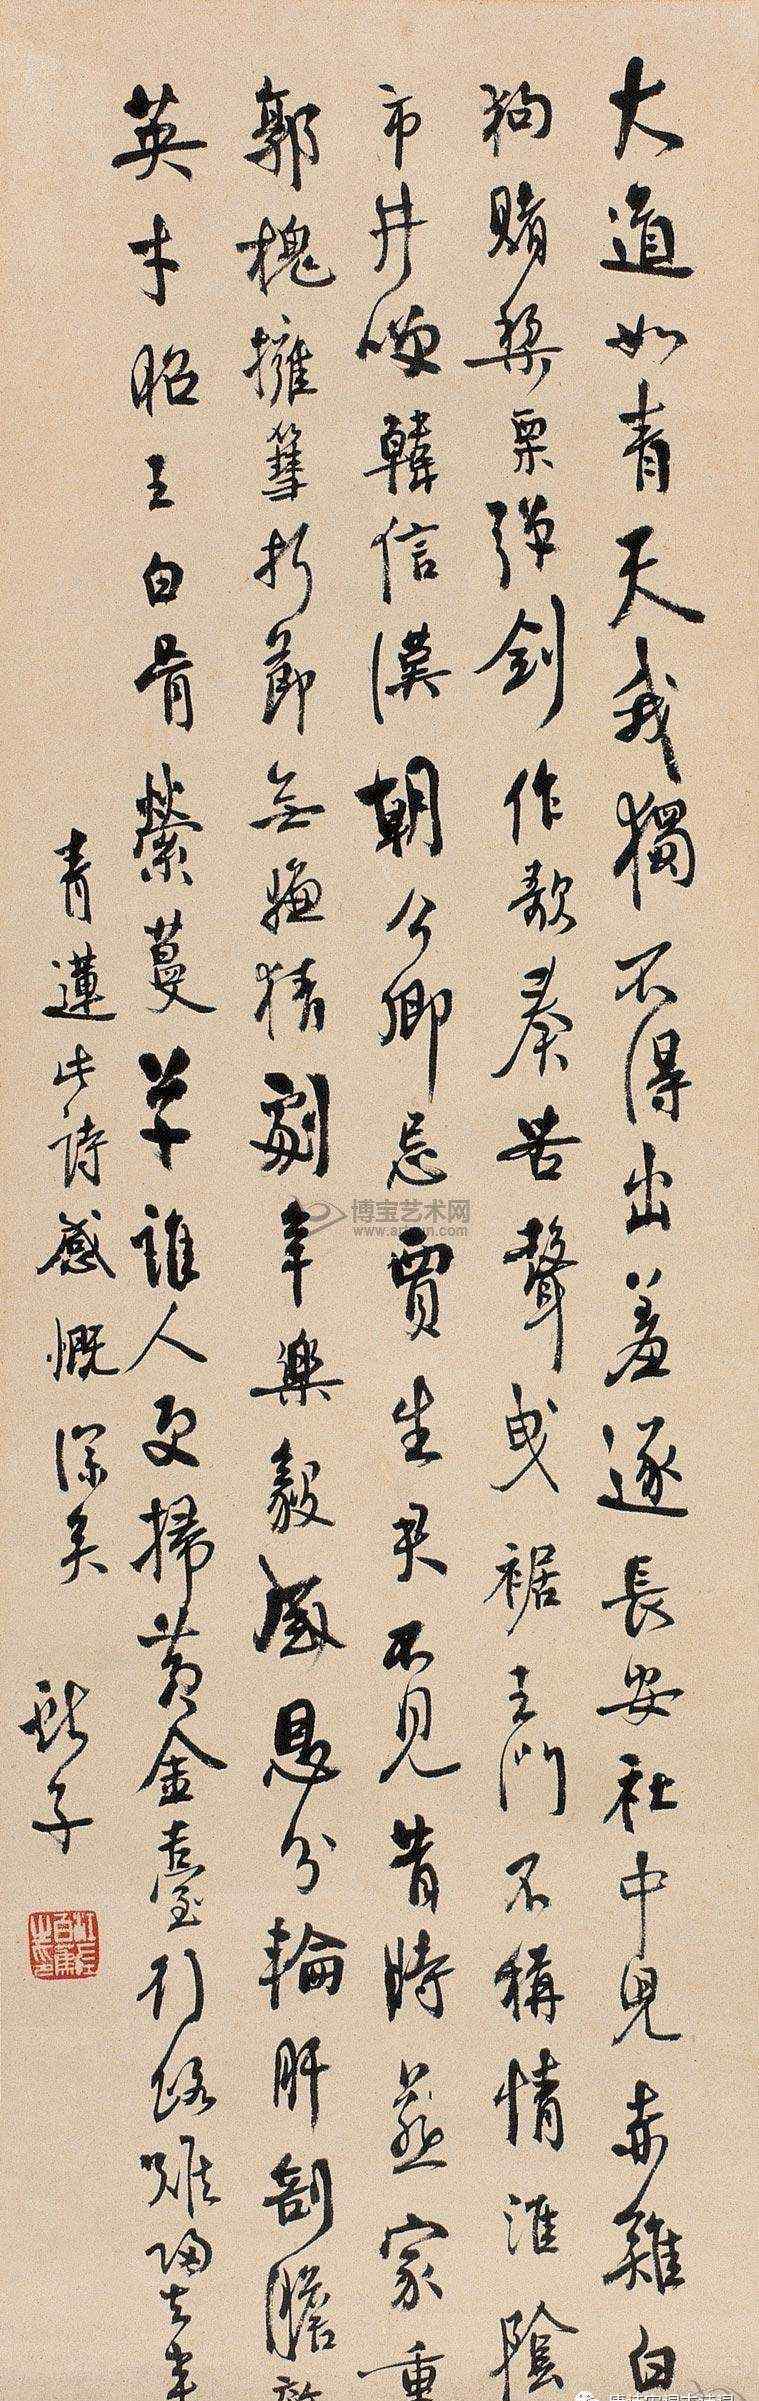 大道如青天我獨不得出羞逐長安社中兒赤雞白
狗賭梨栗彈劍作歌奏苦聲曳裾王門不稱情淮陰
市井咲韓信漢朝公卿忌賈生君不見昔時燕家重
郭槐擁篲折節無嫌猜劇辛樂毅感恩分輸肝剖膽效
英才昭王白骨縈蔓草誰人更掃黃金臺行路難歸去來
青蓮此詩感慨深矣
獻子
博宝艺术网